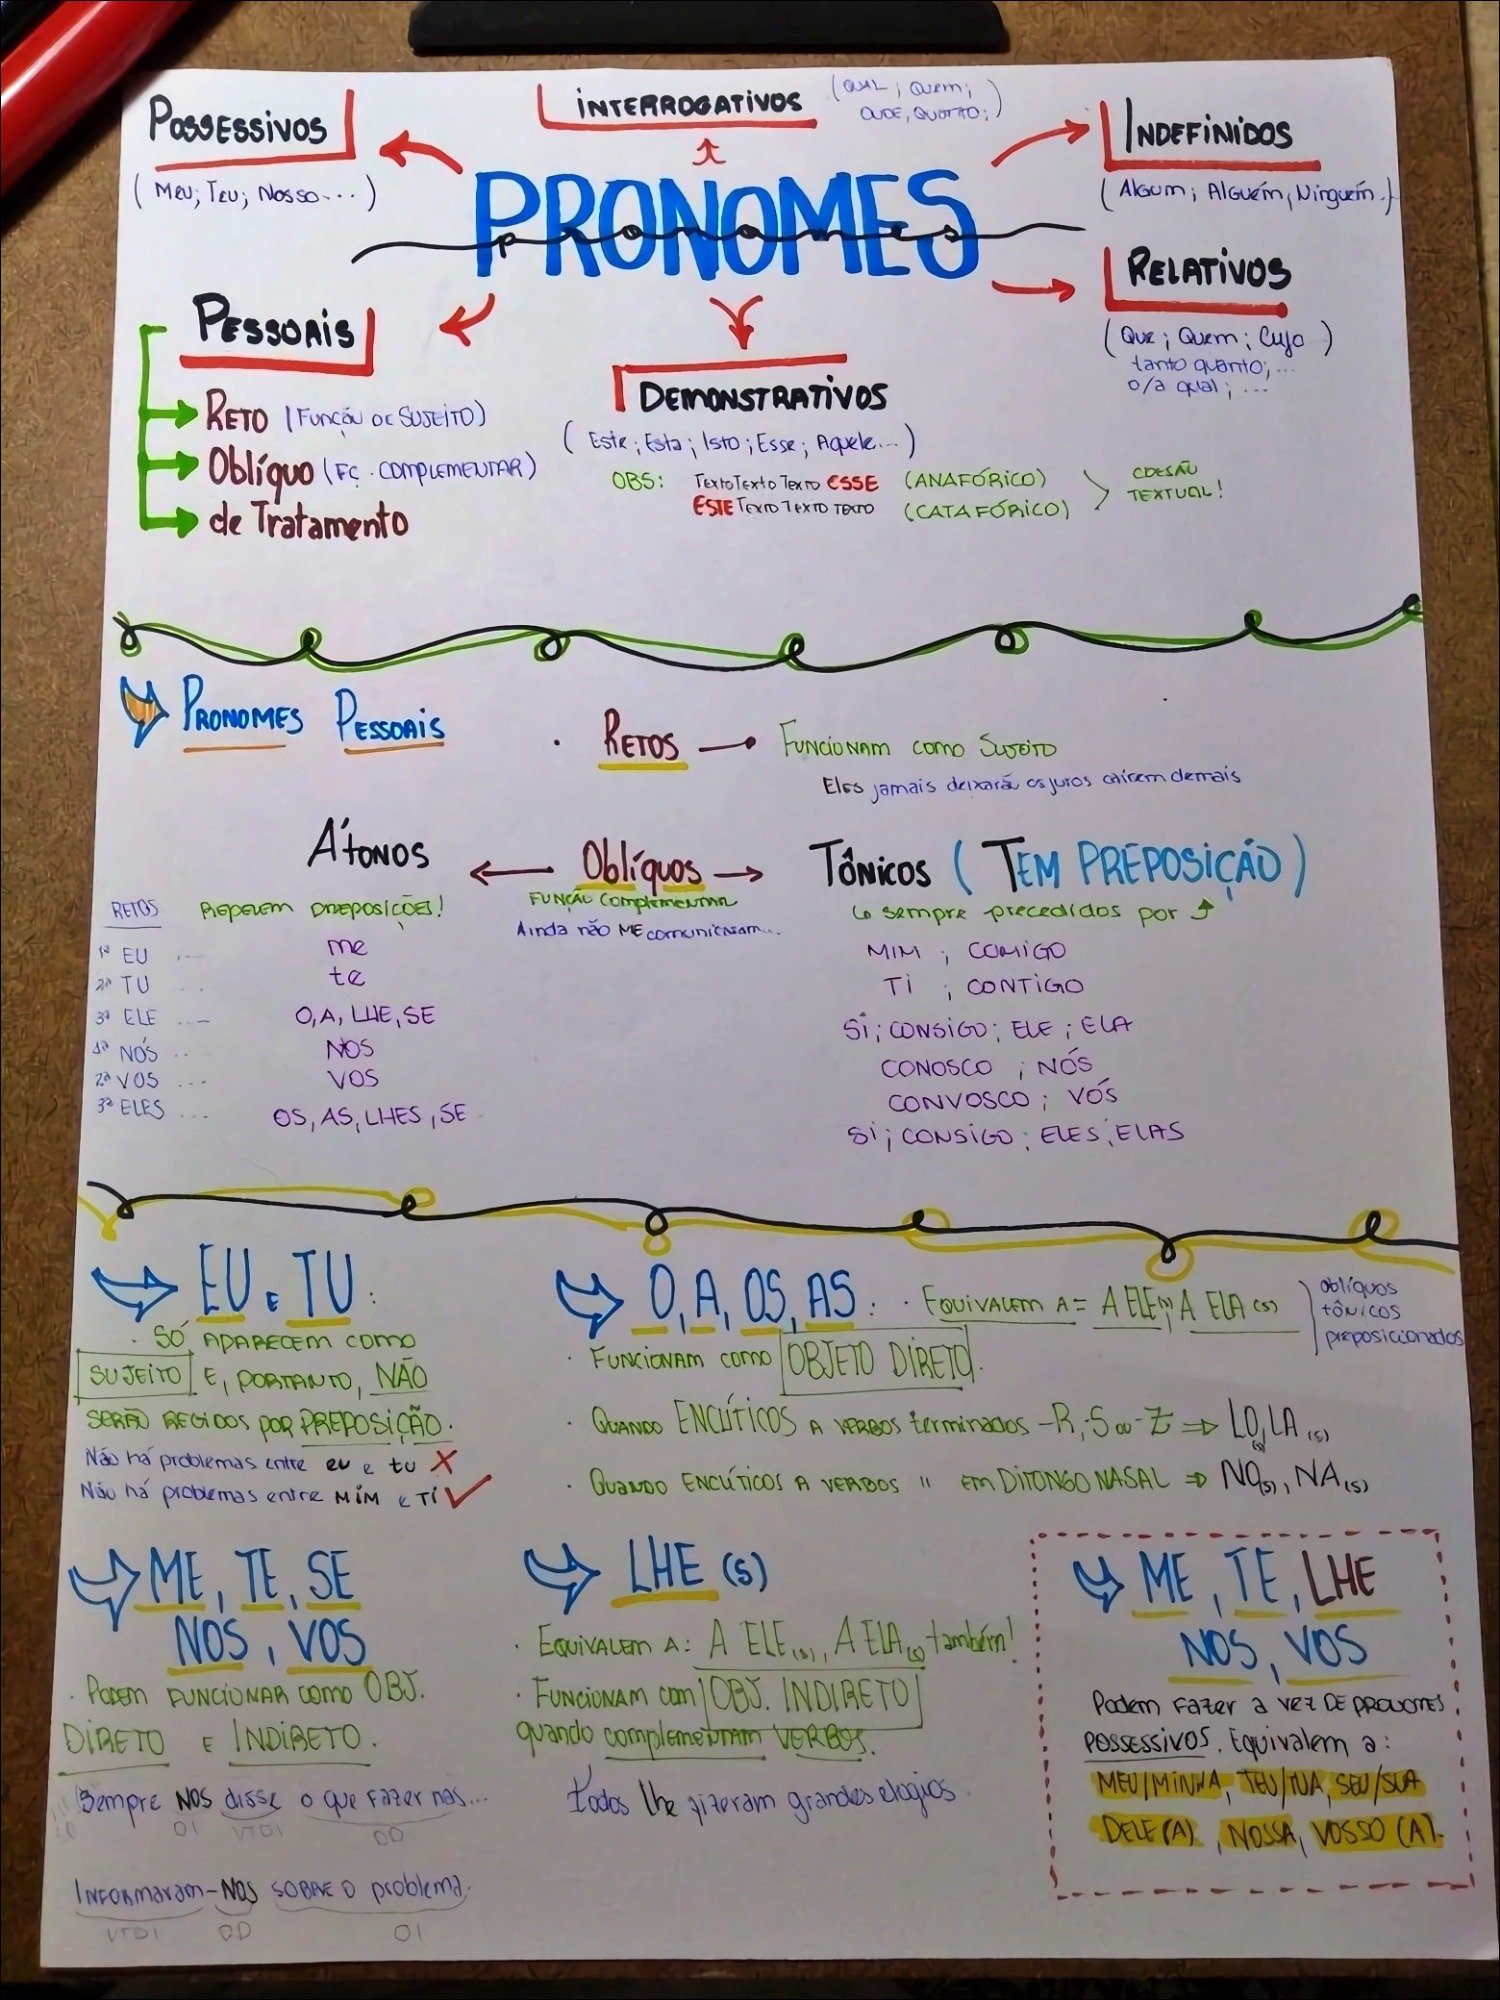 POSSESSIVOS
(MEU; TEU; NOSSO...)
INTERROGATIVOS
(QUAL; QUEM;
INDEFINIDOS
(ALGUM; ALGUÉM, NINGUÉM.)
PRONOMES
pronomes
RELATIVOS
(QUE; QUEM; CUJO)
tanto quanto;...
o/a qual; ...
PESSOAIS
RETO (FUNÇÃO DE SUJEITO)
OBLÍQUO (FÇ. COMPLEMENTAR)
de Tratamento
DEMONSTRATIVOS
(ESTE; ESTA; ISTO; ESSE; AQUELE...)
OBS: TEXTO TEXTO TEXTO ESSE (ANAFÓRICO)
ESTE TEXTO TEXTO TEXTO (CATAFÓRICO)
COESÃO
TEXTUAL!
PRONOMES PESSOAIS
· RETOS → FUNCIONAM COMO SUJEITO
Eles jamais deixarão os juros caírem demais
ÁTONOS ← OBLÍQUOS → TÔNICOS (TEM PREPOSIÇÃO)
REPELEM PREPOSIÇÕES!
FUNÇÃO COMPLEMENTAR
Ainda não ME comunicaram...
↳ sempre precedidos por
RETOS
1ª EU ... me
2ª TU ... te
3ª ELE ... O, A, LHE, SE
1ª NÓS ... NOS
2ª VOS ... VOS
3ª ELES ... OS, AS, LHES, SE
MIM ; COMIGO
TI ; CONTIGO
SI; CONSIGO; ELE; ELA
CONOSCO ; NÓS
CONVOSCO; VÓS
SI; CONSIGO; ELES; ELAS
EU E TU:
· SÓ APARECEM COMO
SUJEITO E, PORTANTO, NÃO
SERÃO REGIDOS POR PREPOSIÇÃO.
Não há problemas entre eu e tu X
Não há problemas entre MIM e TI ✓
O, A, OS, AS: · EQUIVALEM A= A ELE(S), A ELA(S)
oblíquos
tônicos
preposicionados
· FUNCIONAM COMO OBJETO DIRETO.
· QUANDO ENCLÍTICOS A VERBOS terminados -R, S ou -Z ⇒ LO(S), LA(S)
· QUANDO ENCLÍTICOS A VERBOS " EM DITONGO NASAL ⇒ NO(S), NA(S)
ME, TE, SE
NOS, VOS
· PODEM FUNCIONAR COMO OBJ.
DIRETO E INDIRETO.
Sempre NOS disse o que fazer nas...
OI VTDI OD
INFORMARAM-NOS SOBRE O problema.
VTDI OD OI
LHE (S)
· EQUIVALEM A: A ELE(S), A ELA(S) também!
· FUNCIONAM COM OBJ. INDIRETO
quando complementam VERBOS.
Todos lhe fizeram grandes elogios.
ME, TE, LHE
NOS, VOS
Podem FAZER A VEZ DE PRONOMES
POSSESSIVOS. Equivalem a:
MEU/MINHA, TEU/TUA, SEU/SUA
DELE(A), NOSSA, VOSSO (A).